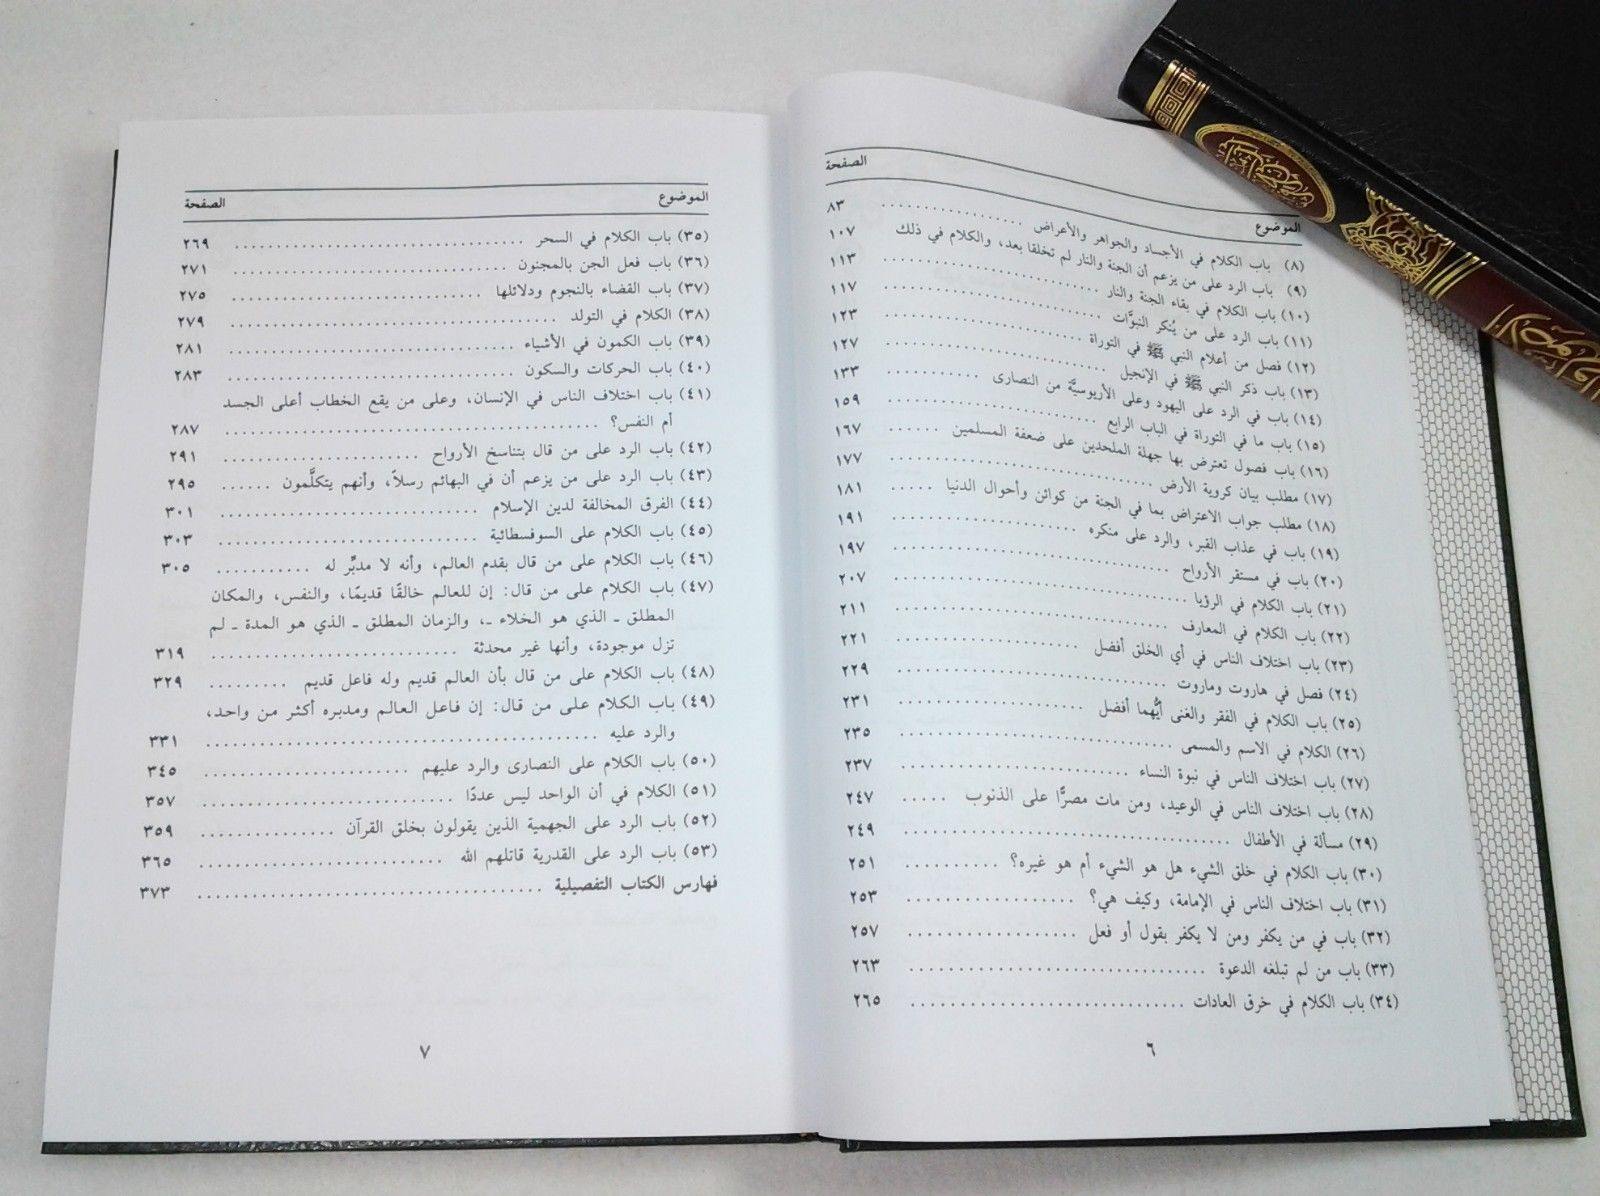 الموضوع الصفحة
(٨) باب الكلام في الأجساد والجواهر والأعراض .................... ٨٣
(٩) باب الرد على من يزعم أن الجنة والنار لم تخلقا بعد، والكلام في ذلك ١٠٧
(١٠) باب الكلام في بقاء الجنة والنار .................... ١١٣
(١١) باب الرد على من يُنكر النبوَّات .................... ١١٧
(١٢) فصل من أعلام النبي ﷺ في التوراة .................... ١٢٣
(١٣) باب ذكر النبي ﷺ في الإنجيل .................... ١٢٧
(١٤) باب في الرد على اليهود وعلى الأريوسيَّة من النصارى .......... ١٣٣
(١٥) باب ما في التوراة في الباب الرابع .................... ١٥٩
(١٦) باب فصول تعترض بها جهلة الملحدين على ضعفة المسلمين ....... ١٦٧
(١٧) مطلب بيان كروية الأرض .................... ١٧٧
(١٨) مطلب جواب الاعتراض بما في الجنة من كوائن وأحوال الدنيا ..... ١٨١
(١٩) باب في عذاب القبر، والرد على منكره .................... ١٩١
(٢٠) باب في مستقر الأرواح .................... ١٩٧
(٢١) باب الكلام في الرؤيا .................... ٢٠٧
(٢٢) باب الكلام في المعارف .................... ٢١١
(٢٣) باب اختلاف الناس في أي الخلق أفضل .................... ٢٢١
(٢٤) فصل في هاروت وماروت .................... ٢٢٩
(٢٥) باب الكلام في الفقر والغنى أيُّهما أفضل .................... ٢٣١
(٢٦) الكلام في الاسم والمسمى .................... ٢٣٥
(٢٧) باب اختلاف الناس في نبوة النساء .................... ٢٣٧
(٢٨) باب اختلاف الناس في الوعيد، ومن مات مصرًّا على الذنوب ..... ٢٤٧
(٢٩) مسألة في الأطفال .................... ٢٤٩
(٣٠) باب الكلام في خلق الشيء هل هو الشيء أم هو غيره؟ .......... ٢٥١
(٣١) باب اختلاف الناس في الإمامة، وكيف هي؟ .................... ٢٥٣
(٣٢) باب في من يكفر ومن لا يكفر بقول أو فعل .................... ٢٥٧
(٣٣) باب من لم تبلغه الدعوة .................... ٢٦٣
(٣٤) باب الكلام في خرق العادات .................... ٢٦٥
٦
الموضوع الصفحة
(٣٥) باب الكلام في السحر .................... ٢٦٩
(٣٦) باب فعل الجن بالمجنون .................... ٢٧١
(٣٧) باب القضاء بالنجوم ودلائلها .................... ٢٧٥
(٣٨) الكلام في التولد .................... ٢٧٩
(٣٩) باب الكمون في الأشياء .................... ٢٨١
(٤٠) باب الحركات والسكون .................... ٢٨٣
(٤١) باب اختلاف الناس في الإنسان، وعلى من يقع الخطاب أعلى الجسد
أم النفس؟ .................... ٢٨٧
(٤٢) باب الرد على من قال بتناسخ الأرواح .................... ٢٩١
(٤٣) باب الرد على من يزعم أن في البهائم رسلاً، وأنهم يتكلَّمون ...... ٢٩٥
(٤٤) الفرق المخالفة لدين الإسلام .................... ٣٠١
(٤٥) باب الكلام على السوفسطائية .................... ٣٠٣
(٤٦) باب الكلام على من قال بقدم العالم، وأنه لا مدبِّر له ........... ٣٠٥
(٤٧) باب الكلام على من قال: إن للعالم خالقًا قديمًا، والنفس، والمكان
المطلق ـ الذي هو الخلاء ـ، والزمان المطلق ـ الذي هو المدة ـ لم
تزل موجودة، وأنها غير محدثة .................... ٣١٩
(٤٨) باب الكلام على من قال بأن العالم قديم وله فاعل قديم ......... ٣٢٩
(٤٩) باب الكلام على من قال: إن فاعل العالم ومدبره أكثر من واحد،
والرد عليه .................... ٣٣١
(٥٠) باب الكلام على النصارى والرد عليهم .................... ٣٤٥
(٥١) الكلام في أن الواحد ليس عددًا .................... ٣٥٧
(٥٢) باب الرد على الجهمية الذين يقولون بخلق القرآن .............. ٣٥٩
(٥٣) باب الرد على القدرية قاتلهم الله .................... ٣٦٥
فهارس الكتاب التفصيلية .................... ٣٧٣
٧